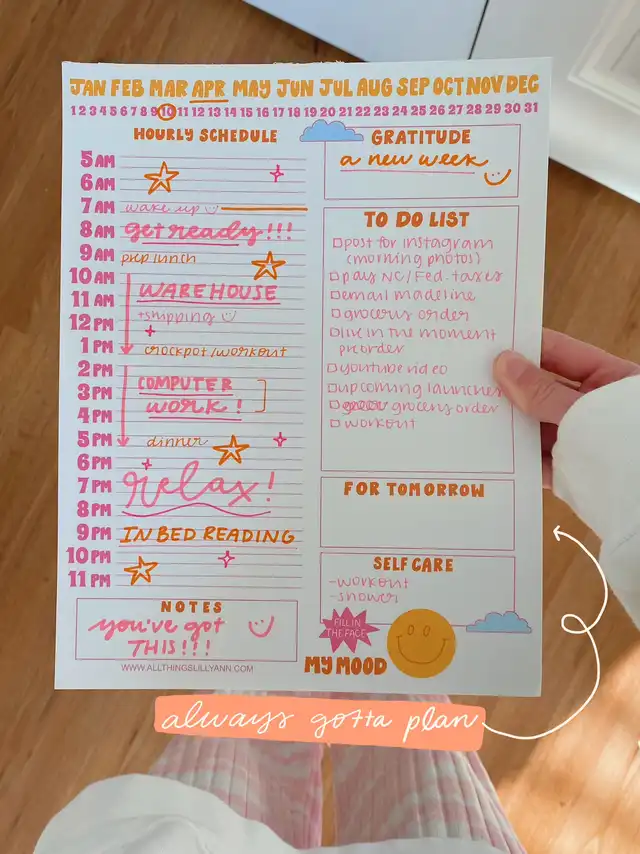 JAN FEB MAR APR MAY JUN JUL AUG SEP OCT NOV DEC
1 2 3 4 5 6 7 8 9 10 11 12 13 14 15 16 17 18 19 20 21 22 23 24 25 26 27 28 29 30 31
HOURLY SCHEDULE
5 AM
6 AM
7 AM wake up
8 AM get ready!!!
9 AM prep lunch
10 AM
11 AM WAREHOUSE
12 PM +shipping
1 PM crockpot/workout
2 PM
3 PM COMPUTER
4 PM work!
5 PM dinner
6 PM
7 PM relax!
8 PM
9 PM IN BED READING
10 PM
11 PM
NOTES
you've got
THIS!!!
WWW.ALLTHINGSLILLYANN.COM
GRATITUDE
a new week
TO DO LIST
post for instagram
(morning photos)
pay NC/Fed. taxes
email madeline
grocery order
live in the moment
preorder
youtube video
upcoming launches
grocery order
workout
FOR TOMORROW
SELF CARE
-workout
-shower
FILL IN
THE FACE
MY MOOD
always gotta plan